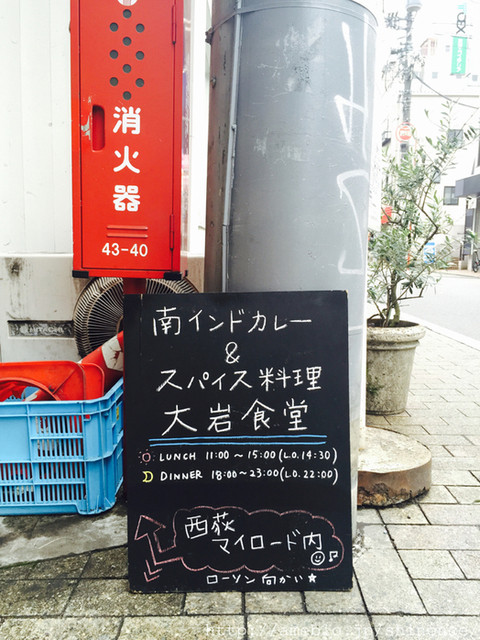 消火器
43-40
HITACHI
南インドカレー
&
スパイス料理
大岩食堂
LUNCH 11:00～15:00(L.O.14:30)
DINNER 18:00～23:00(L.O.22:00)
西荻
マイロード内
ローソン向かい★